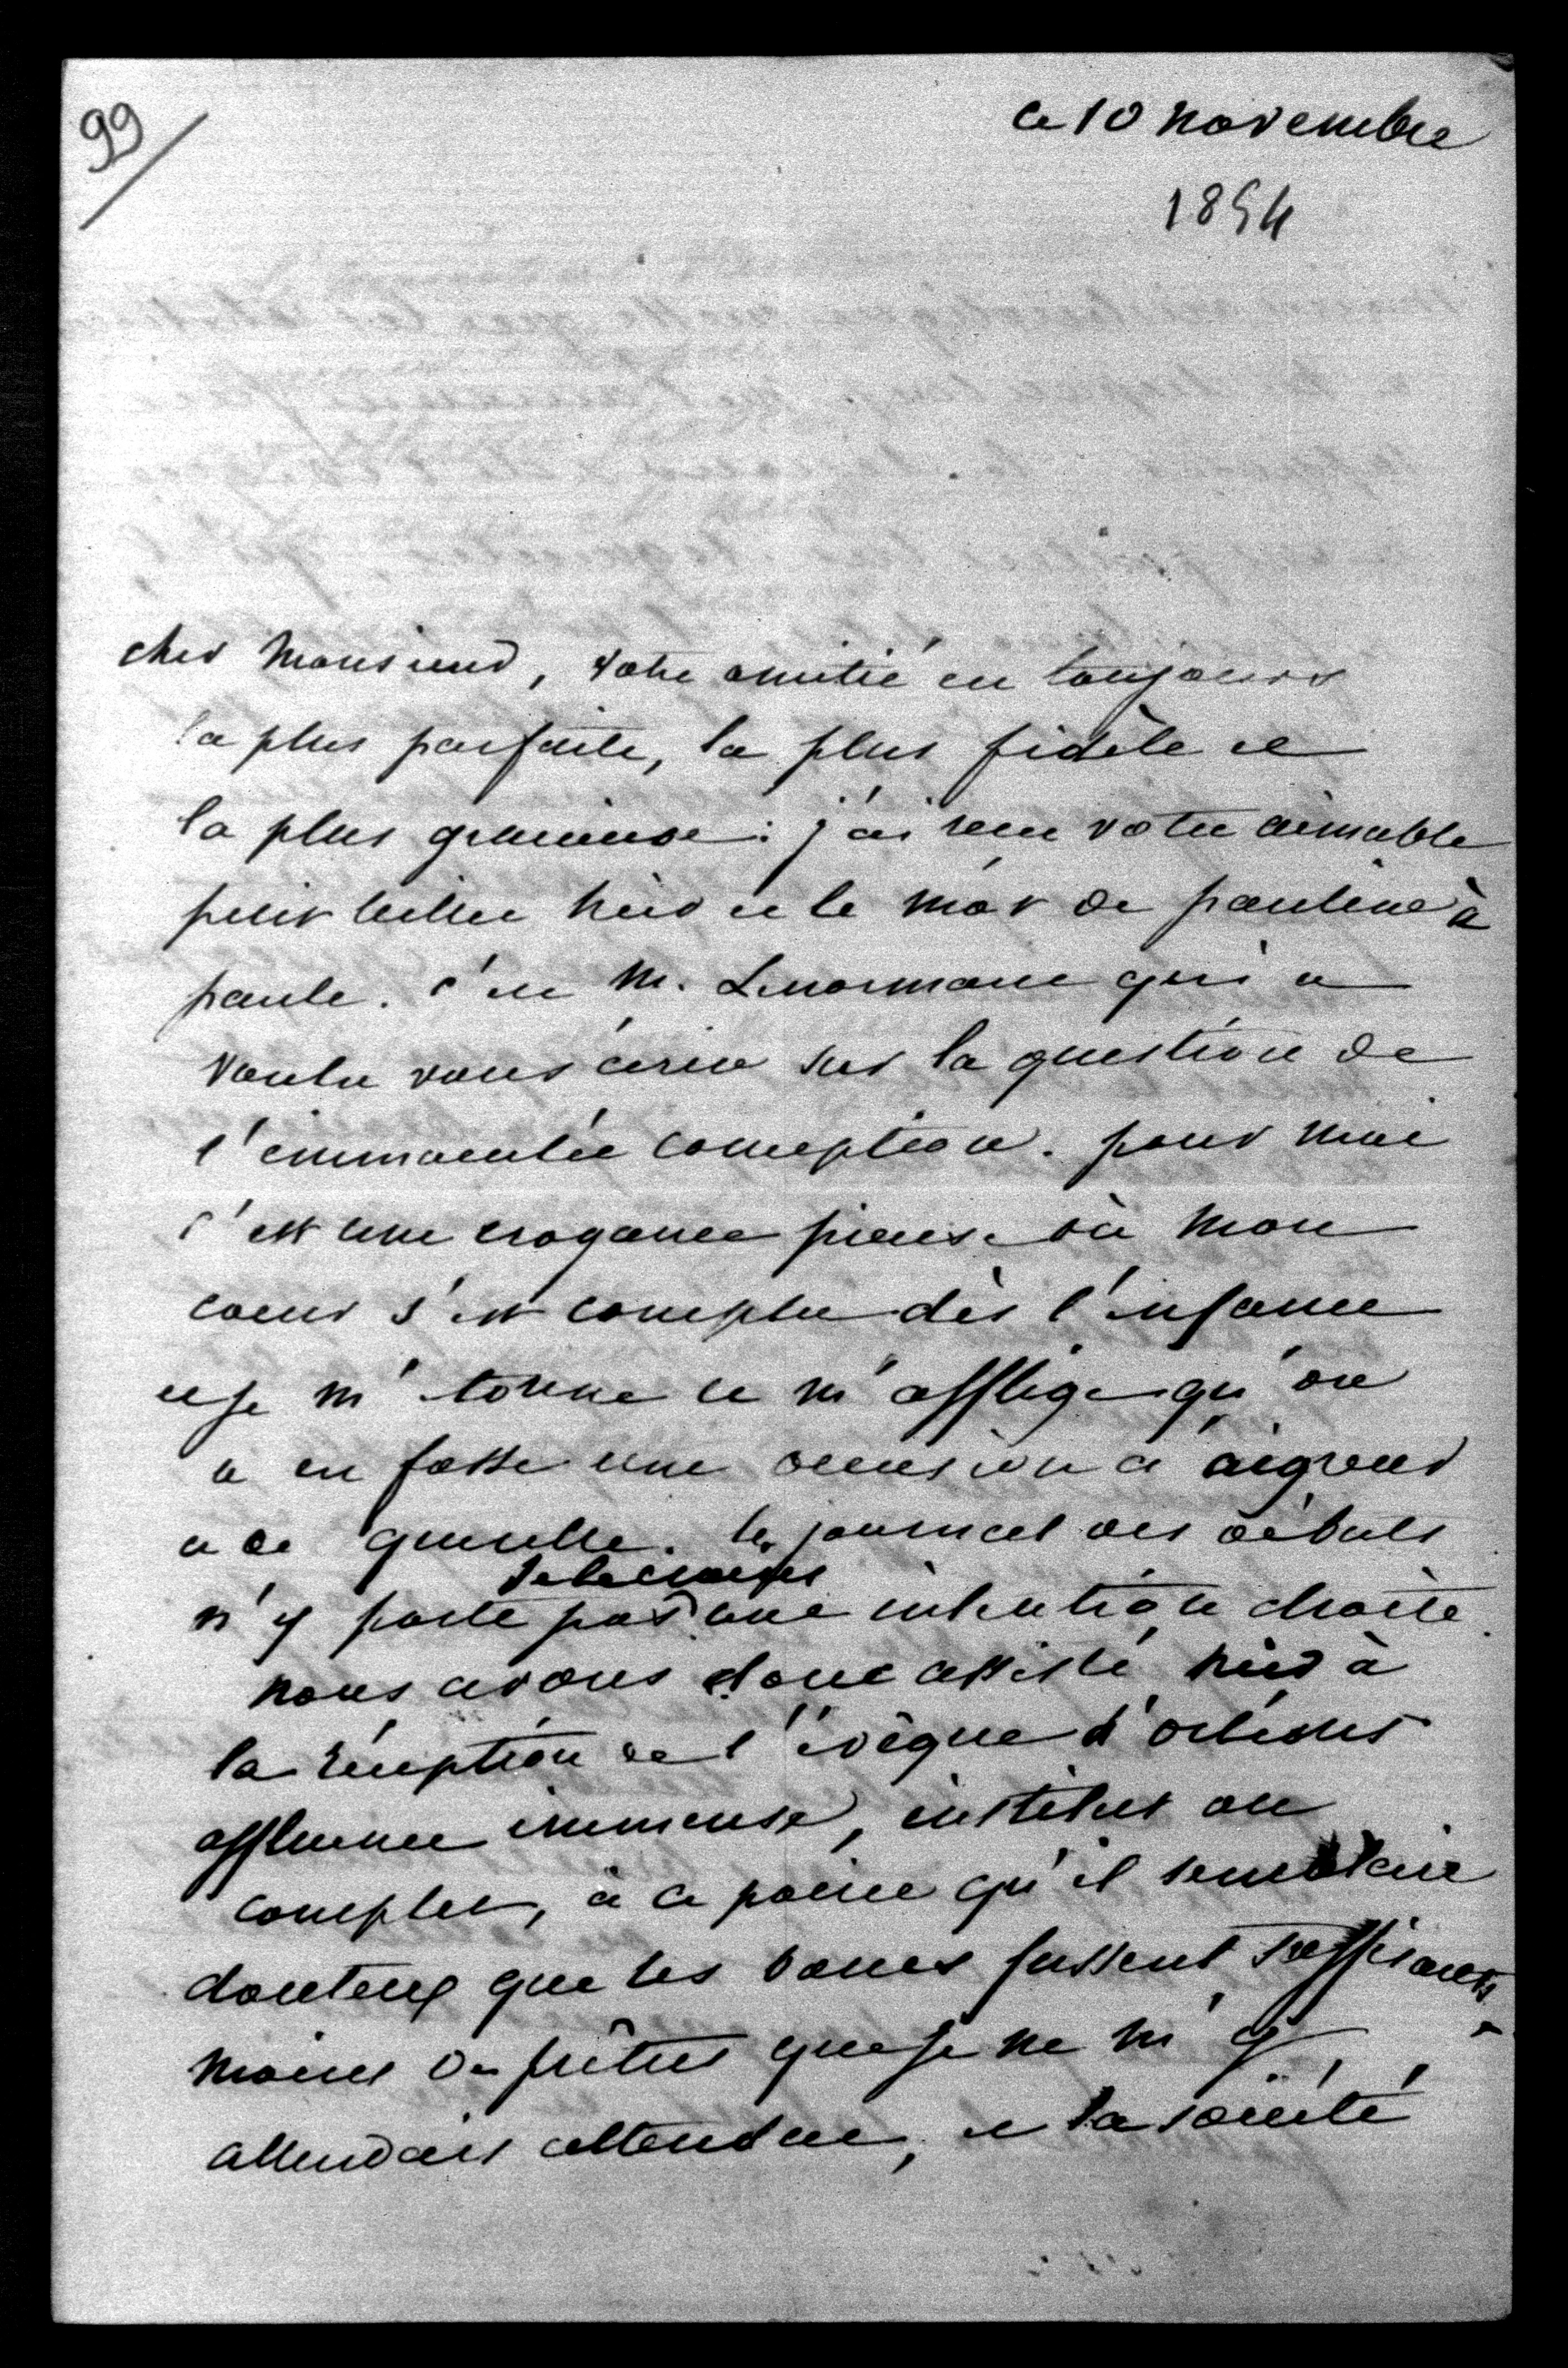 99
ce 10 novembre
1854
cher Monsieur, votre amitié est toujours
la plus parfaite, la plus fidèle et
la plus gracieuse : j'ai reçu votre aimable
petit billet hier et le mot de pauline à
paule. c'est M. Lenormant qui a
voulu vous écrire sur la question de
l'immaculée conception. pour moi
c'est une croyance pieuse où mon
coeur s'est complu dès l'enfance
et je m'étonne et m'afflige qu'on
en fasse une occasion d'aigreur
et de querelle. le journal des débats
n'y porte pas je le crains une intention droite.
nous avons donc assisté hier à
la réception de l'évêque d'orléans
affluence immense, institut au
complet, à ce point qu'il semblait
douteux que les bancs fussent suffisants.
moins de prêtres que je ne m'y
attendais attendue, et la société